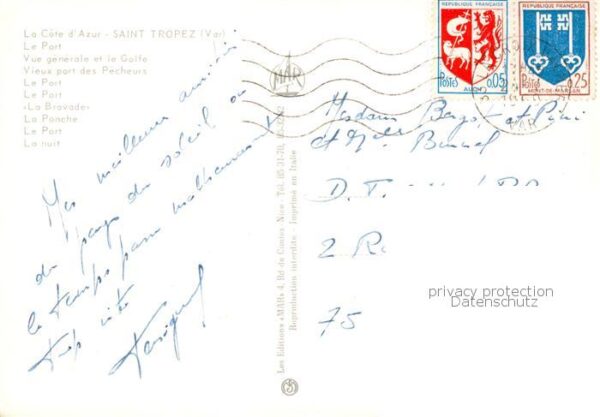 La Côte d'Azur - SAINT TROPEZ (Var)
Le Port
Vue générale et le Golfe
Vieux port des Pecheurs
Le Port
Le Port
«La Bravade»
La Ponche
Le Port
La nuit
Mes meilleures amitiés
du pays du soleil où
le temps passe malheureusement
trop vite
MAR
Les Editions «MAR» 4, Bd de Cimiez Nice - Tél. 85-31-70
Reproduction interdite - Imprimé en Italie
REPUBLIQUE FRANÇAISE
POSTES
0,05
AUCH
REPUBLIQUE FRANÇAISE
POSTES
0,25
MONT-DE-MARSAN
VAR
Madame et
et Melle
D.
2 R
75
privacy protection
Datenschutz